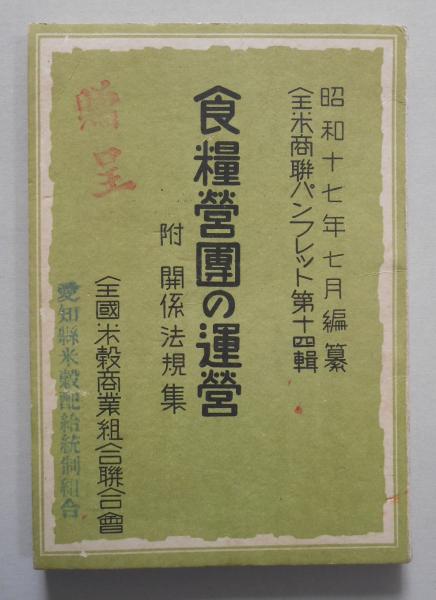 昭和十七年七月編纂
全米商聯パンフレット第十四輯
食糧營團の運營
附 関係法規集
全國米穀商業組合聯合會
贈呈
愛知縣米穀配給統制組合